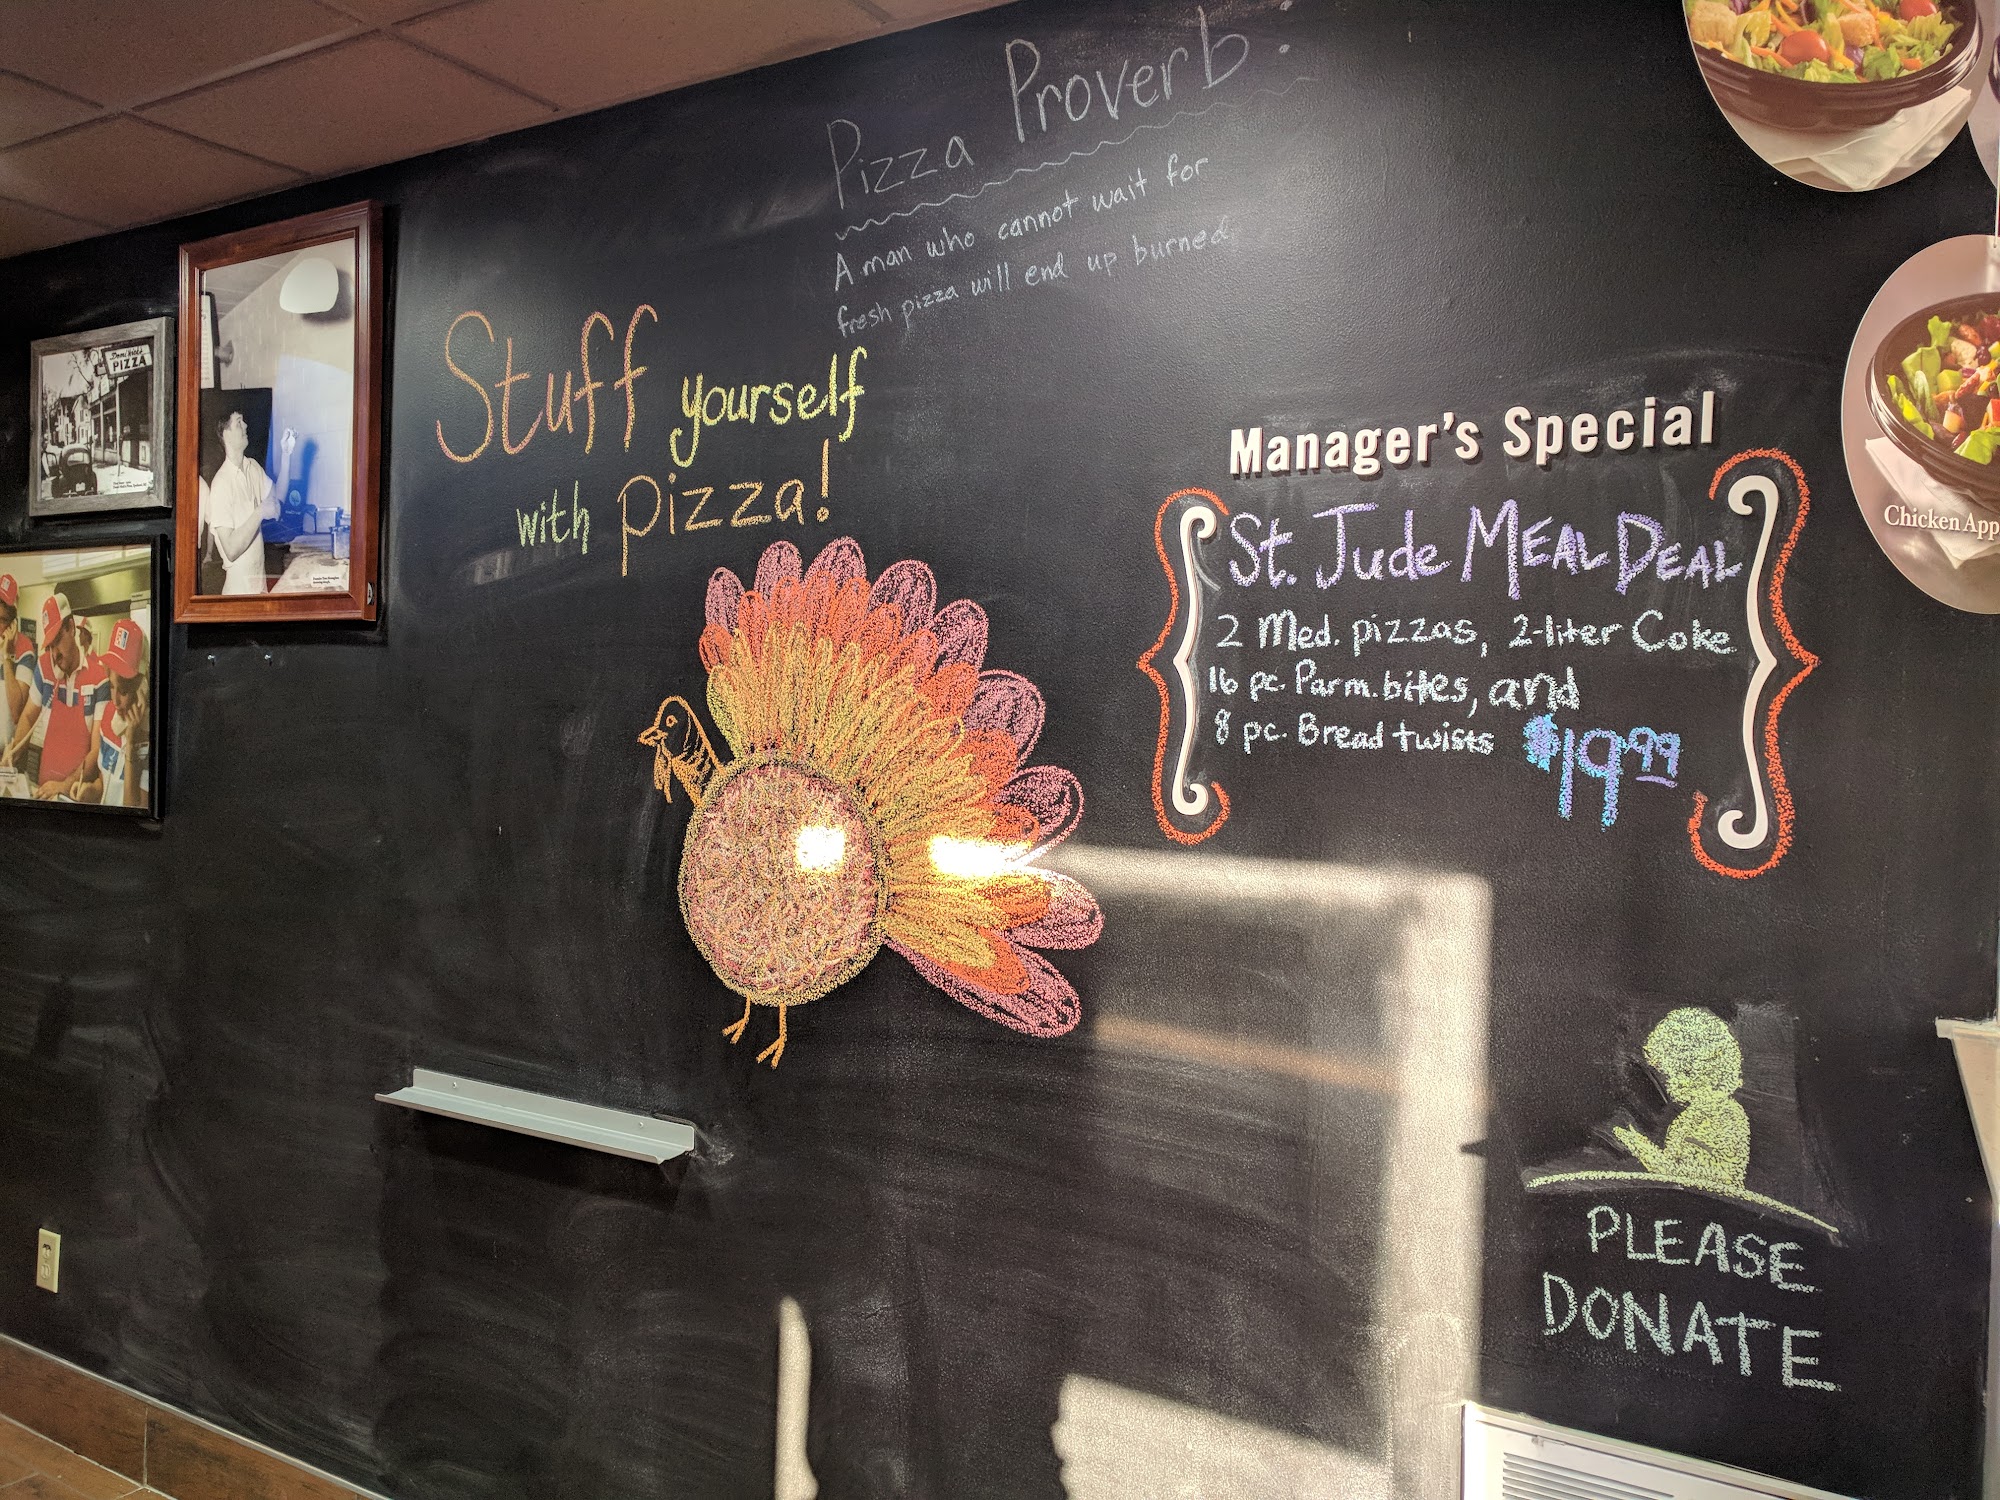 Pizza Proverb:
A man who cannot wait for
fresh pizza will end up burned.
Stuff yourself
with pizza!
PIZZA
Manager's Special
St. Jude MEAL DEAL
2 Med. pizzas, 2-liter Coke
16 pc. Parm. bites, and
8 pc. Bread twists $19.99
Chicken App
PLEASE
DONATE